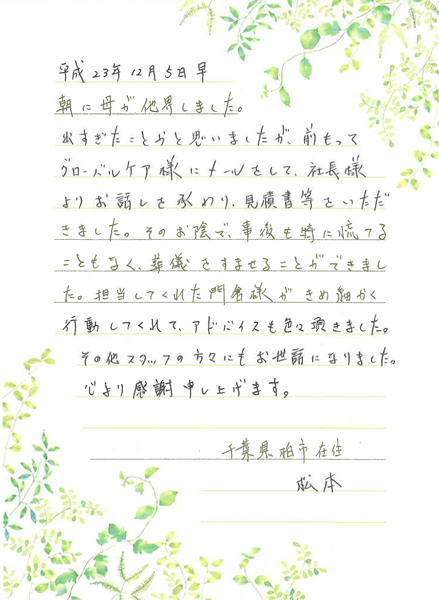 平成23年12月5日早
朝に母が他界しました。
出すぎたことかと思いましたが、前もって
グローバルケア様にメールをして、社長様
よりお話しを承わり、見積書等をいただ
きました。そのお陰で、事後も特に慌てる
こともなく、葬儀をすませることができまし
た。担当してくれた門倉様がきめ細かく
行動してくれて、アドバイスも色々頂きました。
その他スタッフの方々にもお世話になりました。
心より感謝申し上げます。
千葉県柏市在住
松本